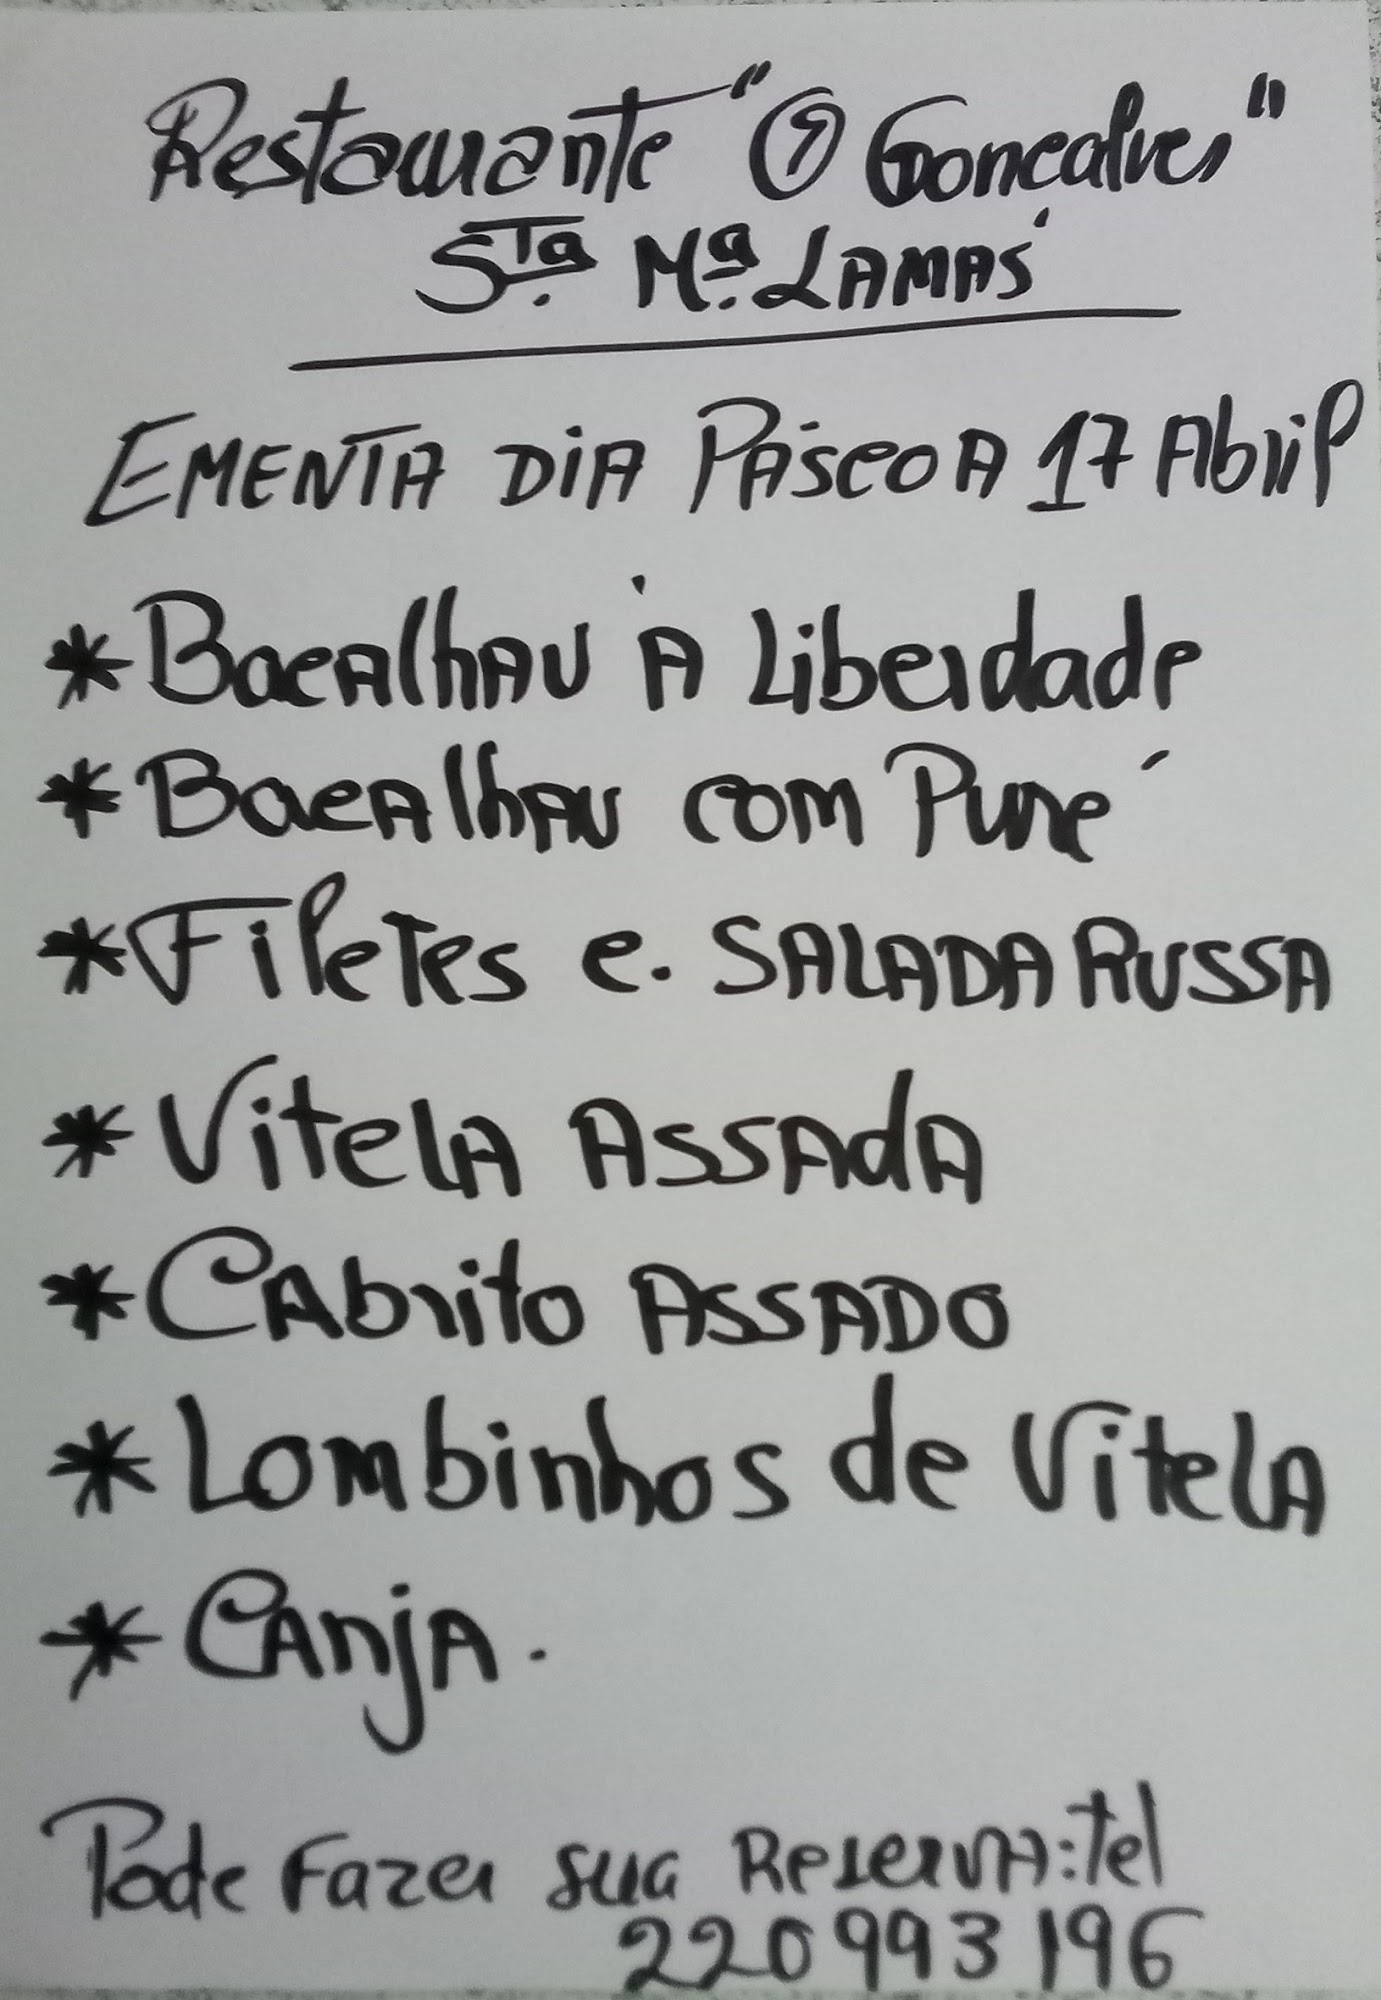 Restaurante "O Gonçalves"
Sta. Ma. LAMAS
EMENTA DIA PÁSCOA 17 Abril
* BacAlhAU À Liberdade
* BacAlhAU com Puré
* Filetes c. SALADA RUSSA
* VitelA ASSAdA
* CAbrito ASSADO
* Lombinhos de VitelA
* CAnjA.
Pode Fazer sua ReservA: tel
220 993 196